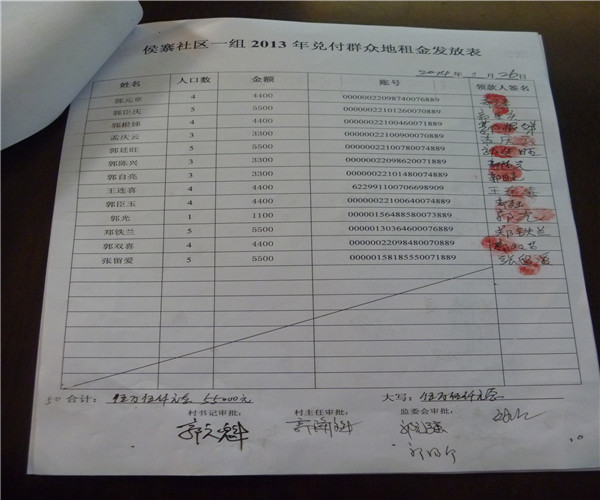 侯寨社区一组 2013 年兑付群众地租金发放表
2014 年 1 月 26 日
姓名 人口数 金额 账号 领款人签名
郭元章 4 4400 00000022098740076889
郭臣庆 5 5500 00000022101260070889
郭根锑 4 4400 00000022100460071889
孟庆云 3 3300 00000022100900070889
郭廷旺 5 5500 00000022100780074889
郭陈兴 3 3300 00000022098620071889
郭自亮 3 3300 00000022101480074889
王连喜 4 4400 622991100706698909 王连喜
郭臣玉 4 4400 00000022100640074889
郭光 1 1100 00000156488580073889 郭光
郑铁兰 5 5500 00000130364600076889 郑铁兰
郭双喜 4 4400 00000022098480070889
张留爱 5 5500 00000158185550071889 张留爱
50 合计: 伍万伍仟元整 55000元 大写: 伍万伍仟元整
村书记审批: 村主任审批: 监委会审批:
郭文魁